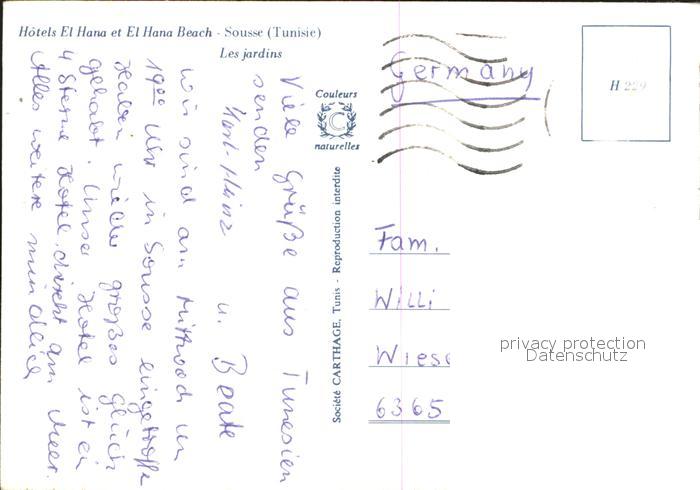 Hôtels El Hana et El Hana Beach - Sousse (Tunisie)
Les jardins
Viele Grüße aus Tunesien
senden
Karl-Heinz u. Beate
Wir sind am Mittwoch um
19⁰⁰ Uhr in Sousse eingetroffen
Haben wieder großes Glück
gehabt. Unser Hotel ist ein
4 Sterne Hotel, direkt am Meer.
Alles weitere mündlich
Couleurs
C
naturelles
Société CARTHAGE, Tunis - Reproduction interdite
Germany
H 229
Fam.
Willi
Wiese
6365
privacy protection
Datenschutz